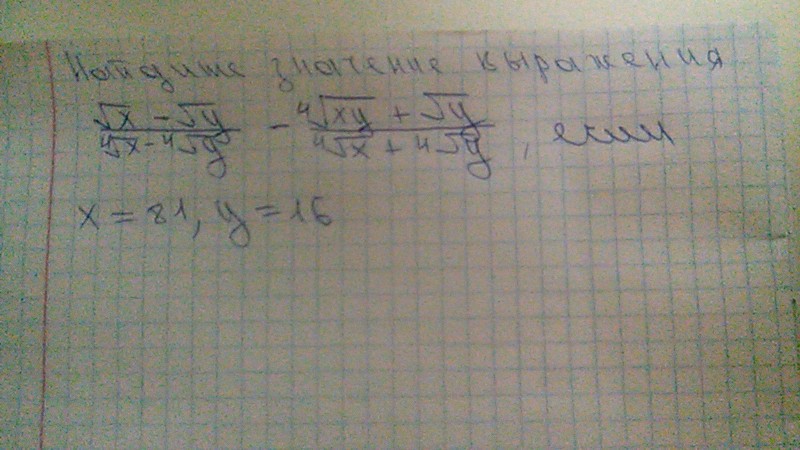 Найдите значение выражения
(√x − √y)/(⁴√x − ⁴√y) − (⁴√xy + √y)/(⁴√x + ⁴√y), если
x = 81, y = 16